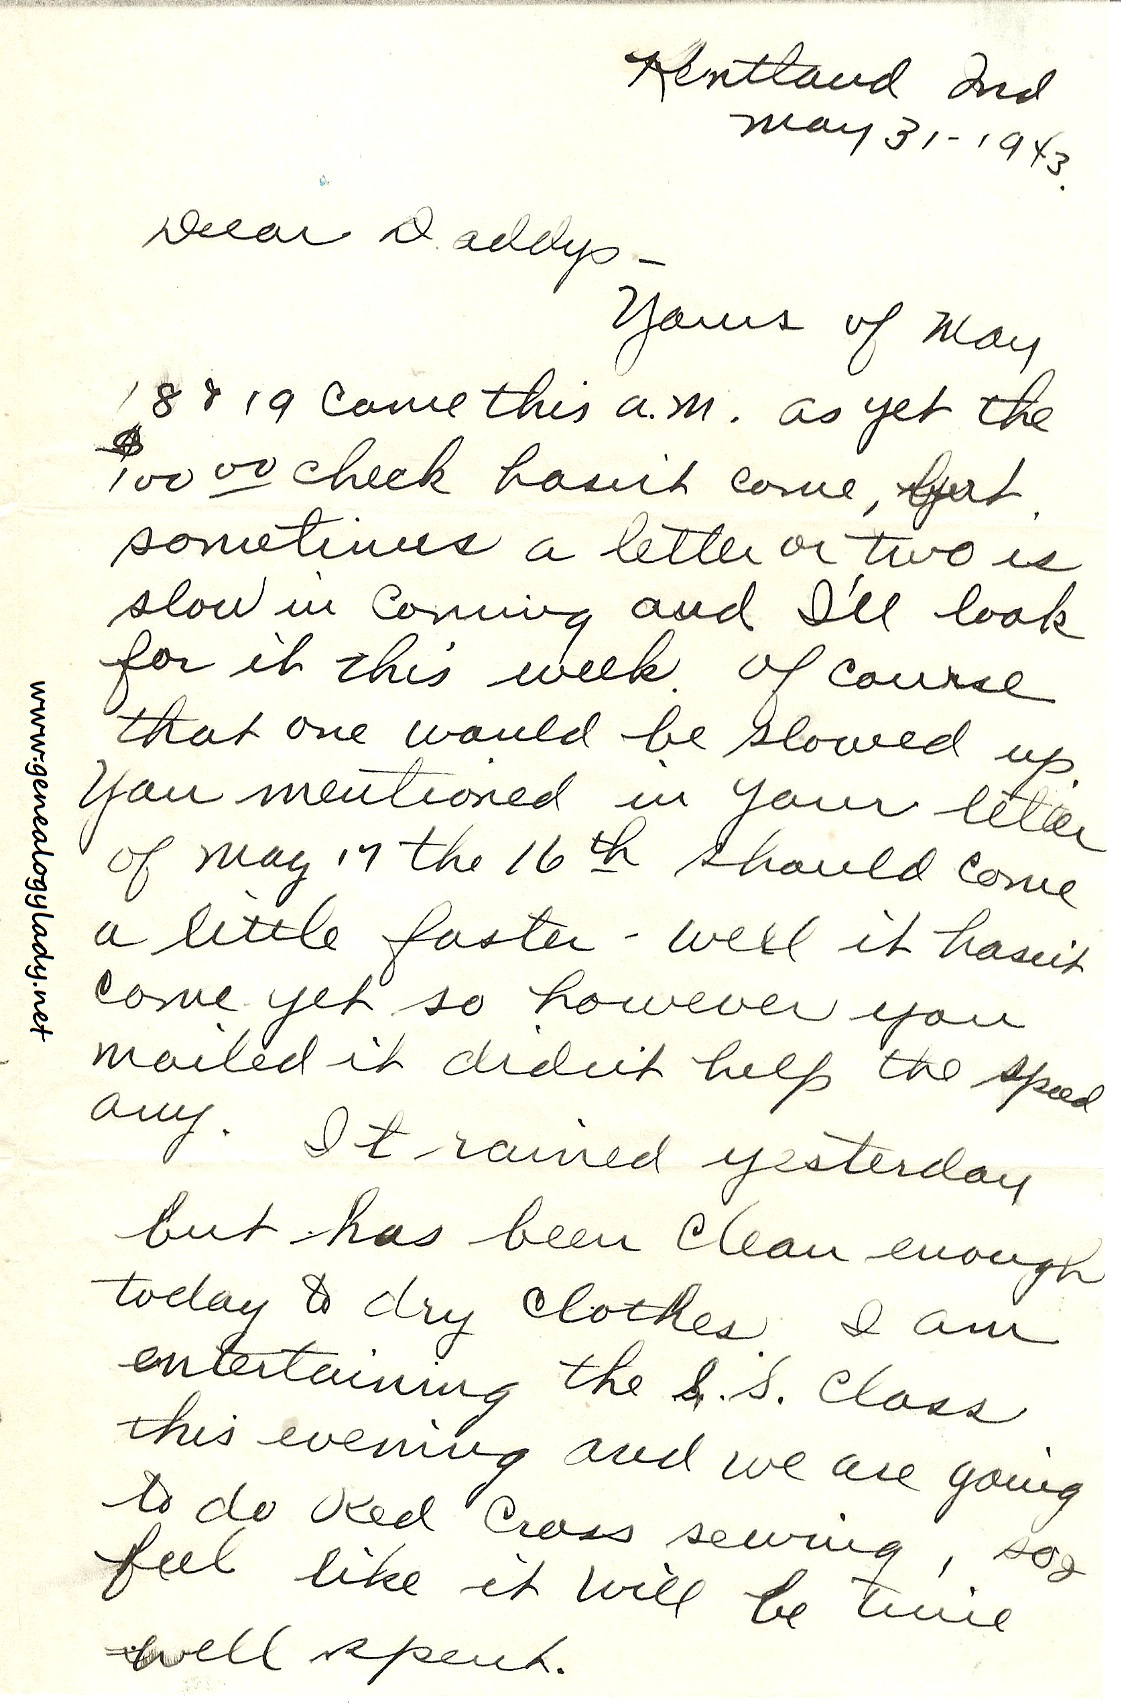 Kentland Ind
May 31-1943.
Dear Daddys-
Yours of May
18 & 19 come this a.m. as yet the
$100 00 check hasn't come, but
sometimes a letter or two is
slow in coming and I'll look
for it this week. Of course
that one would be slowed up.
You mentioned in your letter
of May 17 the 16th should come
a little faster - well it hasn't
come yet so however you
mailed it didn't help the speed
any. It rained yesterday
but has been clean enough
today to dry clothes. I am
entertaining the S.S. class
this evening and we are going
to do Red Cross sewing, so I
feel like it will be time
well spent.
www.genealogylady.net